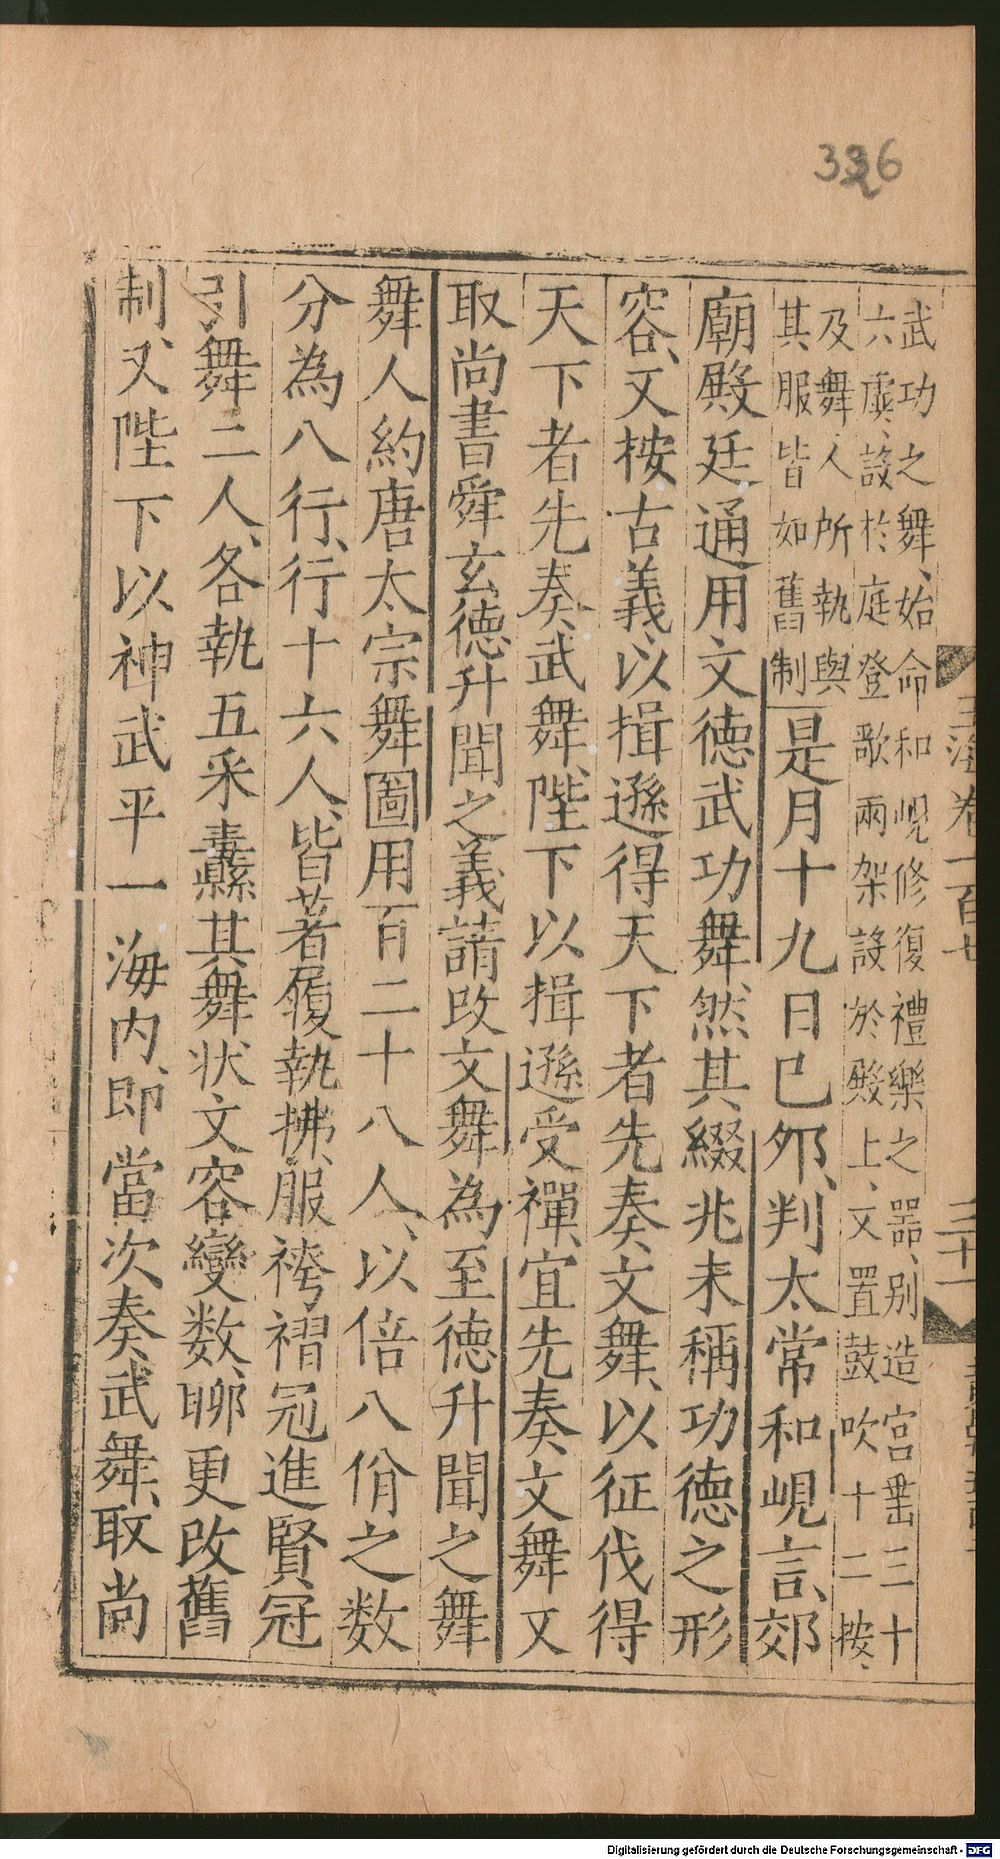 326
武功之舞、始命和峴修復禮樂之器、別造宮垂三十
六虡、設於庭登歌兩架設於殿上、又置鼓吹十二按、
及舞人所執與
其服皆如舊制
是月十九日巳夘、判太常和峴言、郊
廟殿廷通用文德武功舞、然其綴兆未稱功德之形
容、又按古義、以揖遜得天下者先奏文舞、以征伐得
天下者先奏武舞、陛下以揖遜受禪、宜先奏文舞又
取尚書舜玄德升聞之義請改文舞為至德升聞之舞
舞人約唐太宗舞圖用百二十八人、以倍八佾之数
分為八行、行十六人、皆著履執拂、服袴褶冠進賢冠
引舞二人、各執五采纛其舞状文容變数、聊更改舊
制、又陛下以神武平一海内、即當次奏武舞、取尚
玉海卷一百七
三十一
Digitalisierung gefördert durch die Deutsche Forschungsgemeinschaft - DFG